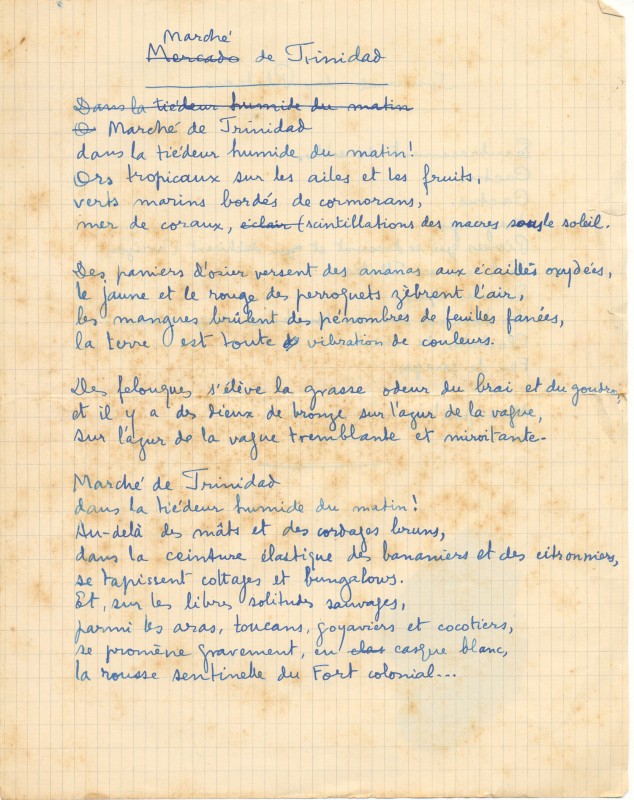 Marché
Mercado de Trinidad
Dans la tiédeur humide du matin
O Marché de Trinidad
dans la tiédeur humide du matin!
Ors tropicaux sur les ailes et les fruits,
verts marins bordés de cormorans,
mer de coraux, éclair (scintillations des nacres sous le soleil.
Des paniers d'osier versent des ananas aux écailles oxydées,
le jaune et le rouge des perroquets zèbrent l'air,
les mangues brûlent des pénombres de feuilles fanées,
la terre est toute vibration de couleurs.
Des felouques s'élève la grasse odeur du brai et du goudron,
et il y a des dieux de bronze sur l'azur de la vague,
sur l'azur de la vague tremblante et miroitante.
Marché de Trinidad
dans la tiédeur humide du matin!
Au-delà des mâts et des cordages bruns,
dans la ceinture élastique des bananiers et des citronniers,
se tapissent cottages et bungalows.
Et, sur les libres solitudes sauvages,
parmi les aras, toucans, goyaviers et cocotiers,
se promène gravement, en casque blanc,
la rousse sentinelle du Fort colonial...